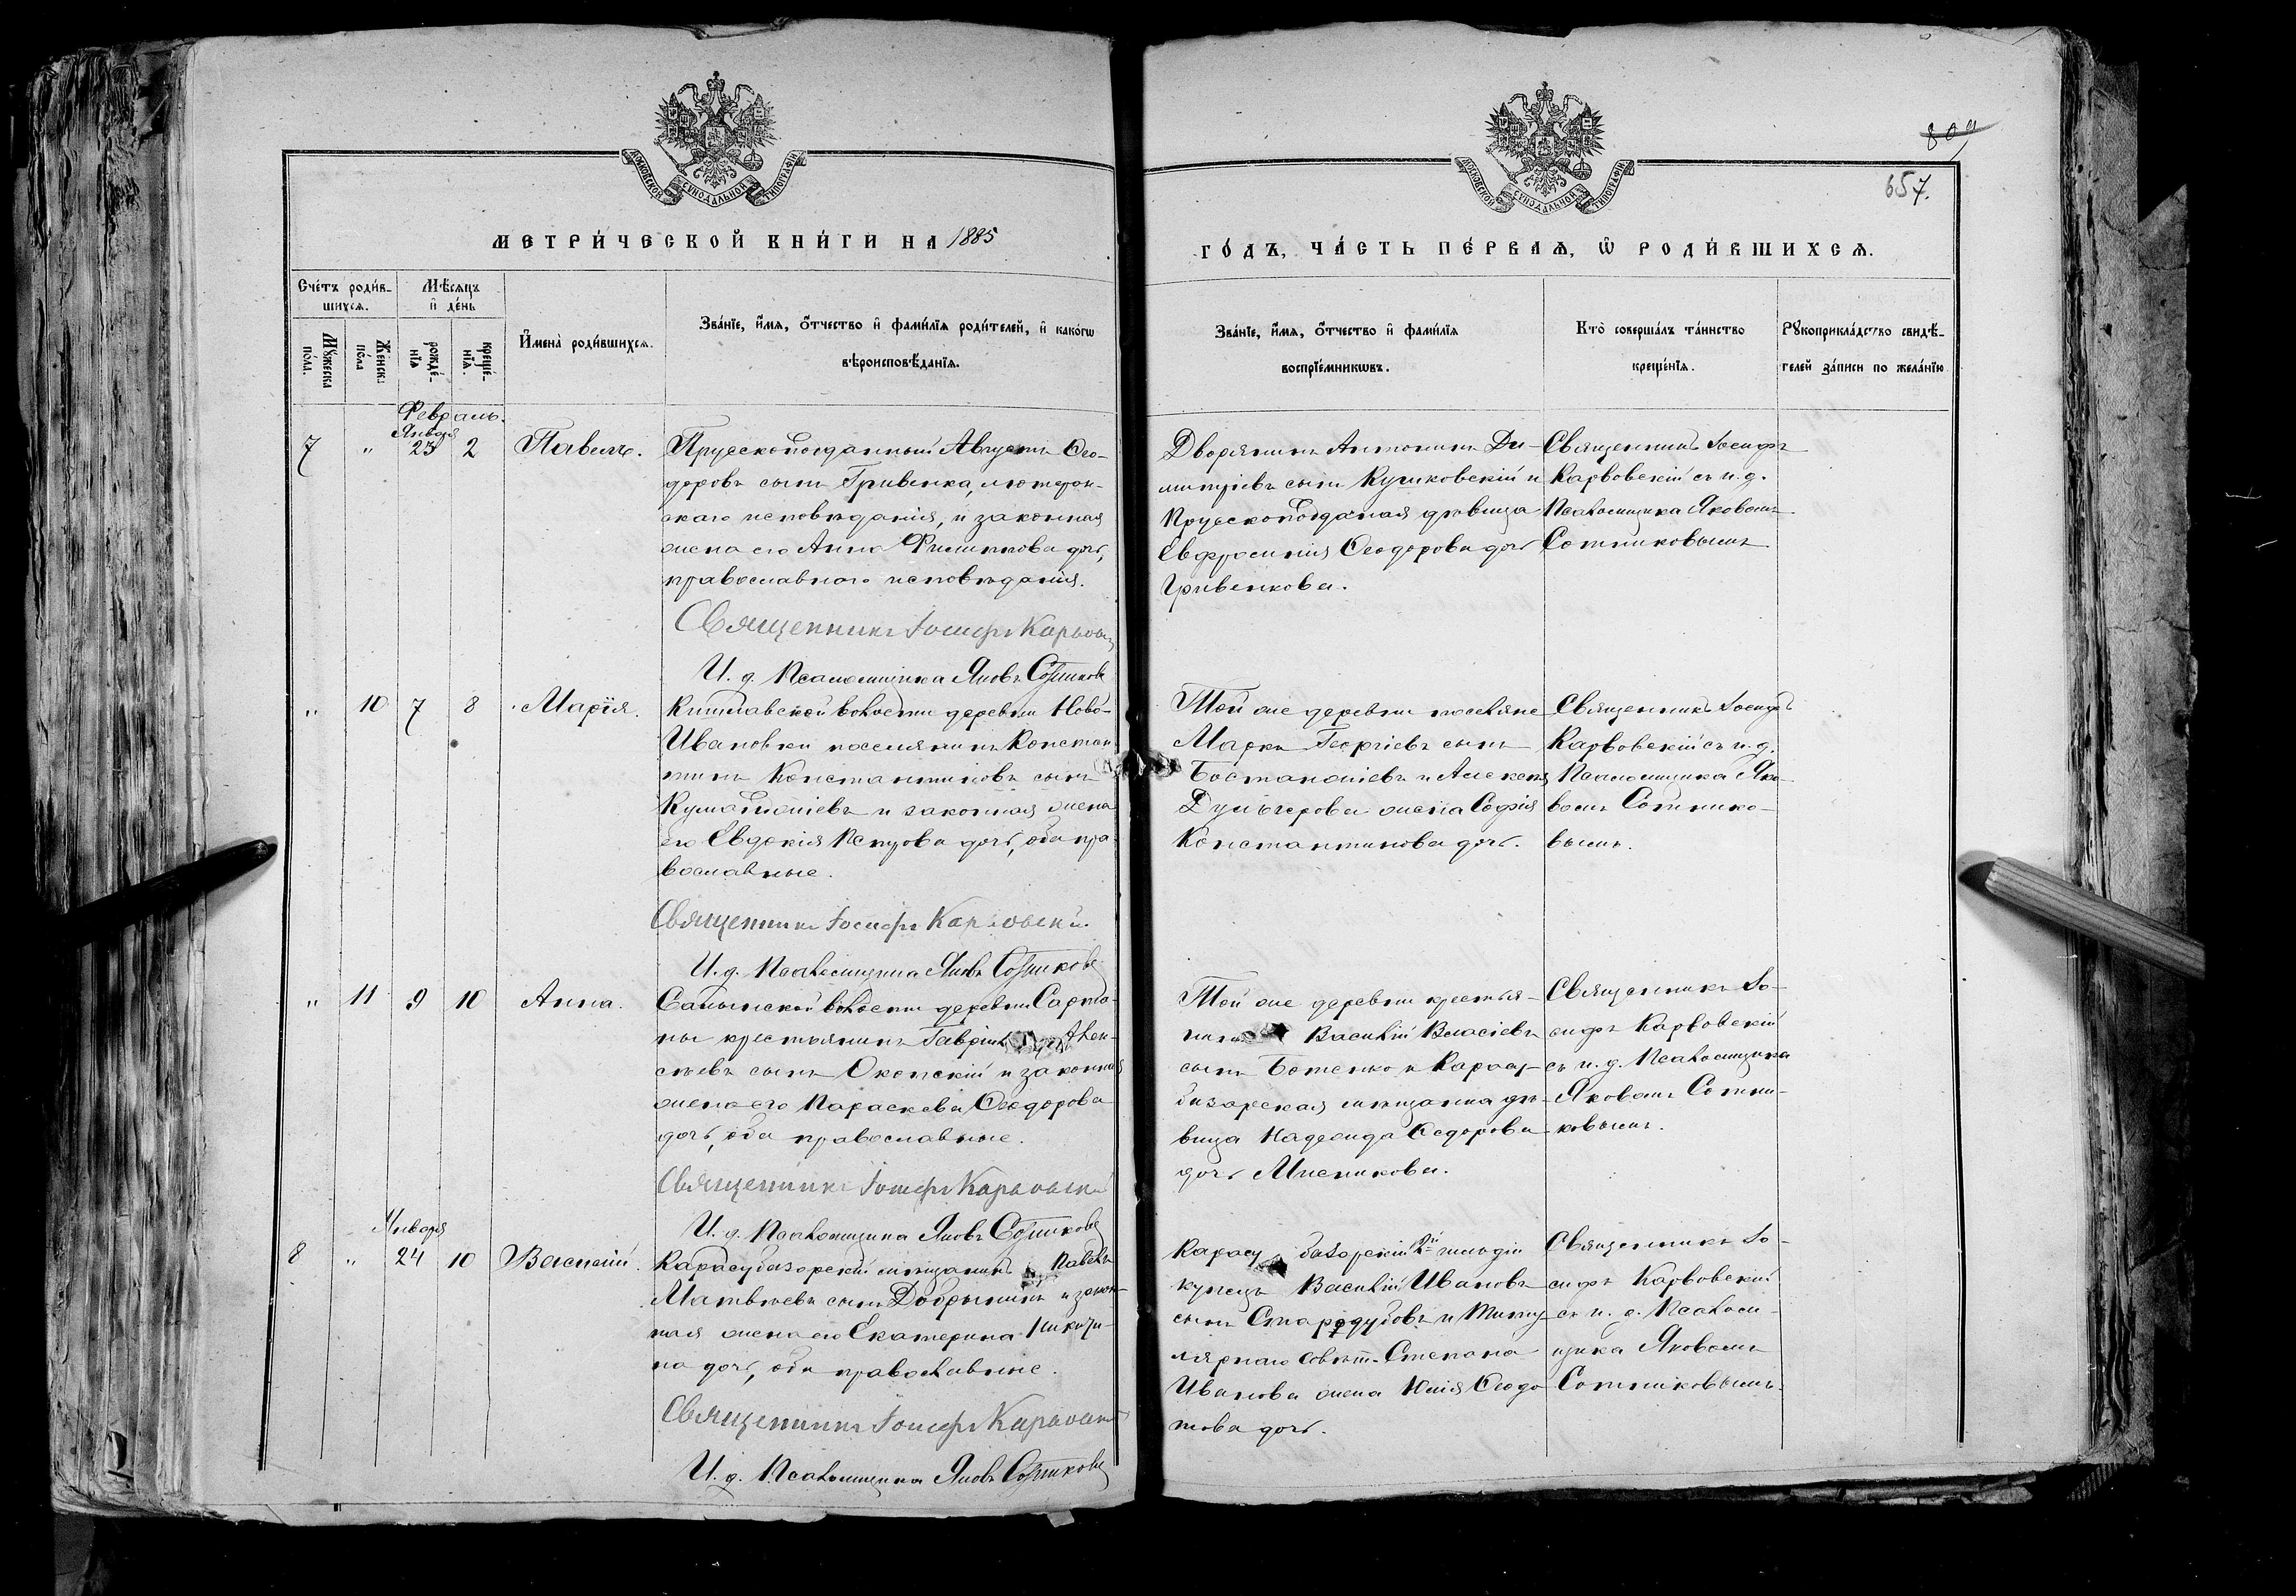 МОСКОВСКОЙ СѴНОДАЛЬНОЙ ТИПОГРАФІИ
МЕТРИ́ЧЕСКОЙ КНИ́ГИ НА 1885
Сче́тъ роди́в-
шихсѧ.
Мѣ́сѧцъ
и҆ де́нь
Мꙋжеска
по́ла.
Же́нска
по́ла
рожде́-
нїѧ
креще́-
нїѧ.
И҆мена̀ роди́вшихсѧ.
Зва́нїе, и҆́мѧ, ѻ҆́тчество и҆ фами́лїѧ роди́телей, и҆ како́гѡ
вѣроисповѣ́данїѧ.
Февраль.
Января
7 " 23 2 Павелъ.
Прусскоподданный Августъ Ѳео-
доровъ сынъ Гривенка, лютеран-
скаго исповѣданія, и законная
жена его Анна Филиппова дочь,
православнаго исповѣданія.
Священникъ Іосифъ Карвовскій
И. д. Псаломщика Яковъ Сотниковъ
" 10 7 8 Марія.
волости деревни Ново-
Ивановки поселянинъ Констан-
тинъ Константиновъ сынъ
и законная жена
его Евдокія Петрова дочь, оба пра-
вославные.
Священникъ Іосифъ Карвовскій
И. д. Псаломщика Яковъ Сотниковъ
" 11 9 10 Анна.
волости деревни Сарта-
ны крестьянинъ Гавріилъ Алек-
сѣевъ сынъ Оконскій и законная
жена его Параскева Ѳеодорова
дочь, оба православные.
Священникъ Іосифъ Карвовскій
И. д. Псаломщика Яковъ Сотниковъ
Января
8 " 24 10 Василій.
Карасубазарскій мѣщанинъ Павелъ
Матвѣевъ сынъ Добрынинъ и закон-
ная жена его Екатерина Никити-
на дочь, оба православные.
Священникъ Іосифъ Карвовскій
И. д. Псаломщика Яковъ Сотниковъ
МОСКОВСКОЙ СѴНОДАЛЬНОЙ ТИПОГРАФІИ
809
657.
ГО́ДЪ, ЧА́СТЬ ПЕ́РВАѦ, Ѽ РОДИ́ВШИХСѦ.
Зва́нїе, и҆́мѧ, ѻ҆́тчество и҆ фами́лїѧ
воспрїе́мникѡвъ.
Кто̀ соверша́лъ та́инство
креще́нїѧ.
Рꙋкоприкла́дство свидѣ́-
телей за́писи по жела́нїю
Дворянинъ Антонинъ Ди-
митріевъ сынъ Кушковскій и
Прусскоподданая дѣвица
Евфросинія Ѳеодорова дочь
Гривенкова.
Священникъ Іосифъ
Карвовскій съ и. д.
Псаломщика Яковомъ
Сотниковымъ
Той же деревни поселяне
Марк Георгіевъ сынъ
Бостанжіевъ и Алексѣя
Дульгерова жена Софія
Константинова дочь.
Священникъ Іосифъ
Карвовскій съ и. д.
Псаломщика Яко-
вомъ Сотнико-
вымъ.
Той же деревни крестья-
нинъ Василій Власіевъ
сынъБотенко и Карасу-
базарская мѣщанка дѣ-
вица Надежда Ѳедорова
дочь Мшеникова.
Священникъ Іо-
сифъ Карвовскій
съ и. д. Псаломщика
Яковомъ Сотни-
ковымъ.
Карасубазарскій 2й гильдіи
купецъ Василій Ивановъ
сынъ Стародубовъ и Титу-
лярнаго Совѣт. Степана
Иванова жена Юлія Ѳеодо-
това дочь.
Священникъ Іо-
сифъ Карвовскій
съ и. д. Псалом-
щика Яковомъ
Сотниковымъ.